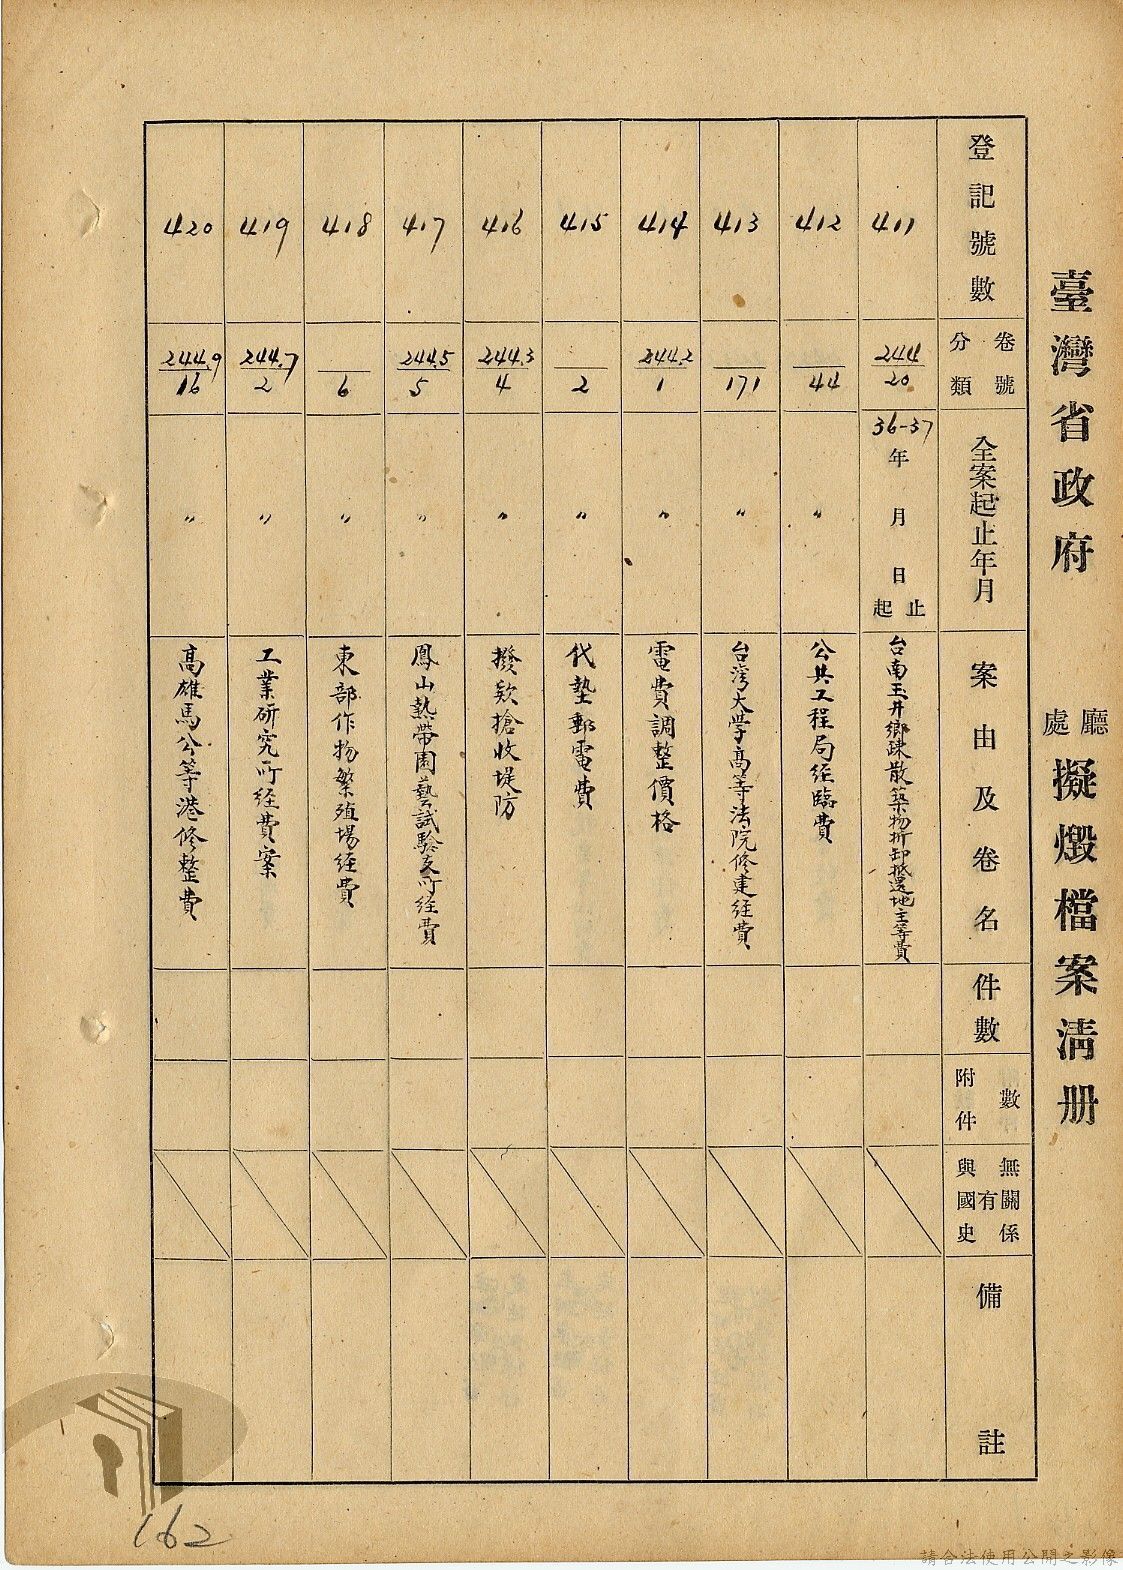 臺灣省政府
廳處
擬燬檔案清册
登記號數
分類
卷號
全案起止年月
案由及卷名
件數
附件數
與國史
有
無關係
備註
411
244
20
36-37
年
月
日
起止
台南玉井鄉疎散築物折卸抵還地主等費
412
44
〃
公共工程局經臨費
413
171
〃
台灣大学高等法院修建経費
414
244.2
1
〃
電費調整價格
415
2
〃
代墊郵電費
416
244.3
4
〃
撥欵搶收堤防
417
244.5
5
〃
鳳山熱帶園藝試驗支所経費
418
6
〃
東部作物繁殖場経費
419
244.7
2
〃
工業研究所経費案
420
244.9
16
〃
高雄馬公等港修整費
162
請合法使用公開之影像